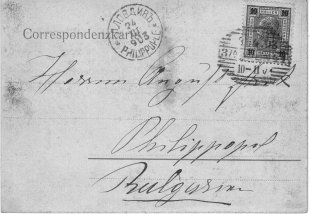 Correspondenzkarte
ПЛОВДИВЪ
24
903
PHILIPPOPLE
10 10
10-11 V
Herrn August
Philippopel
Bulgarien